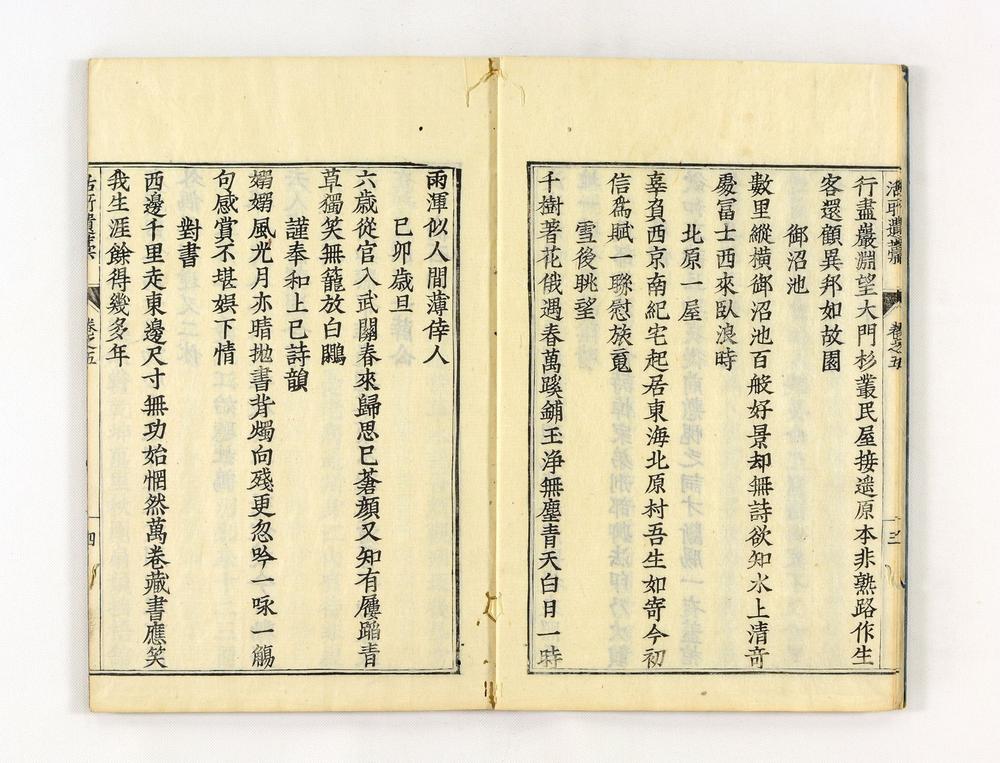 活所遺藁
卷之五
三
行盡巖淵望大門杉叢民屋接遥原本非熟路作生
客還顧異邦如故園
御沼池
數里縱橫御沼池百般好景却無詩欲知水上清竒
處冨士西來臥浪時
北原一屋
辜負西京南紀宅起居東海北原村吾生如寄今初
信爲賦一聯慰旅䰟
雪後眺望
千樹著花俄遇春萬蹊鋪玉浄無塵青天白日一時
雨渾似人間薄倖人
己卯歳旦
六歳從官入武關春來歸思已蒼顔又知有屨蹈青
草獨笑無籠放白鷴
謹奉和上巳詩韻
嫋嫋風光月亦晴抛書背燭向殘更忽吟一咏一觴
句感賞不堪娯下情
對書
西邊千里走東邊尺寸無功始惘然萬卷藏書應笑
我生涯餘得幾多年
卷之五
四